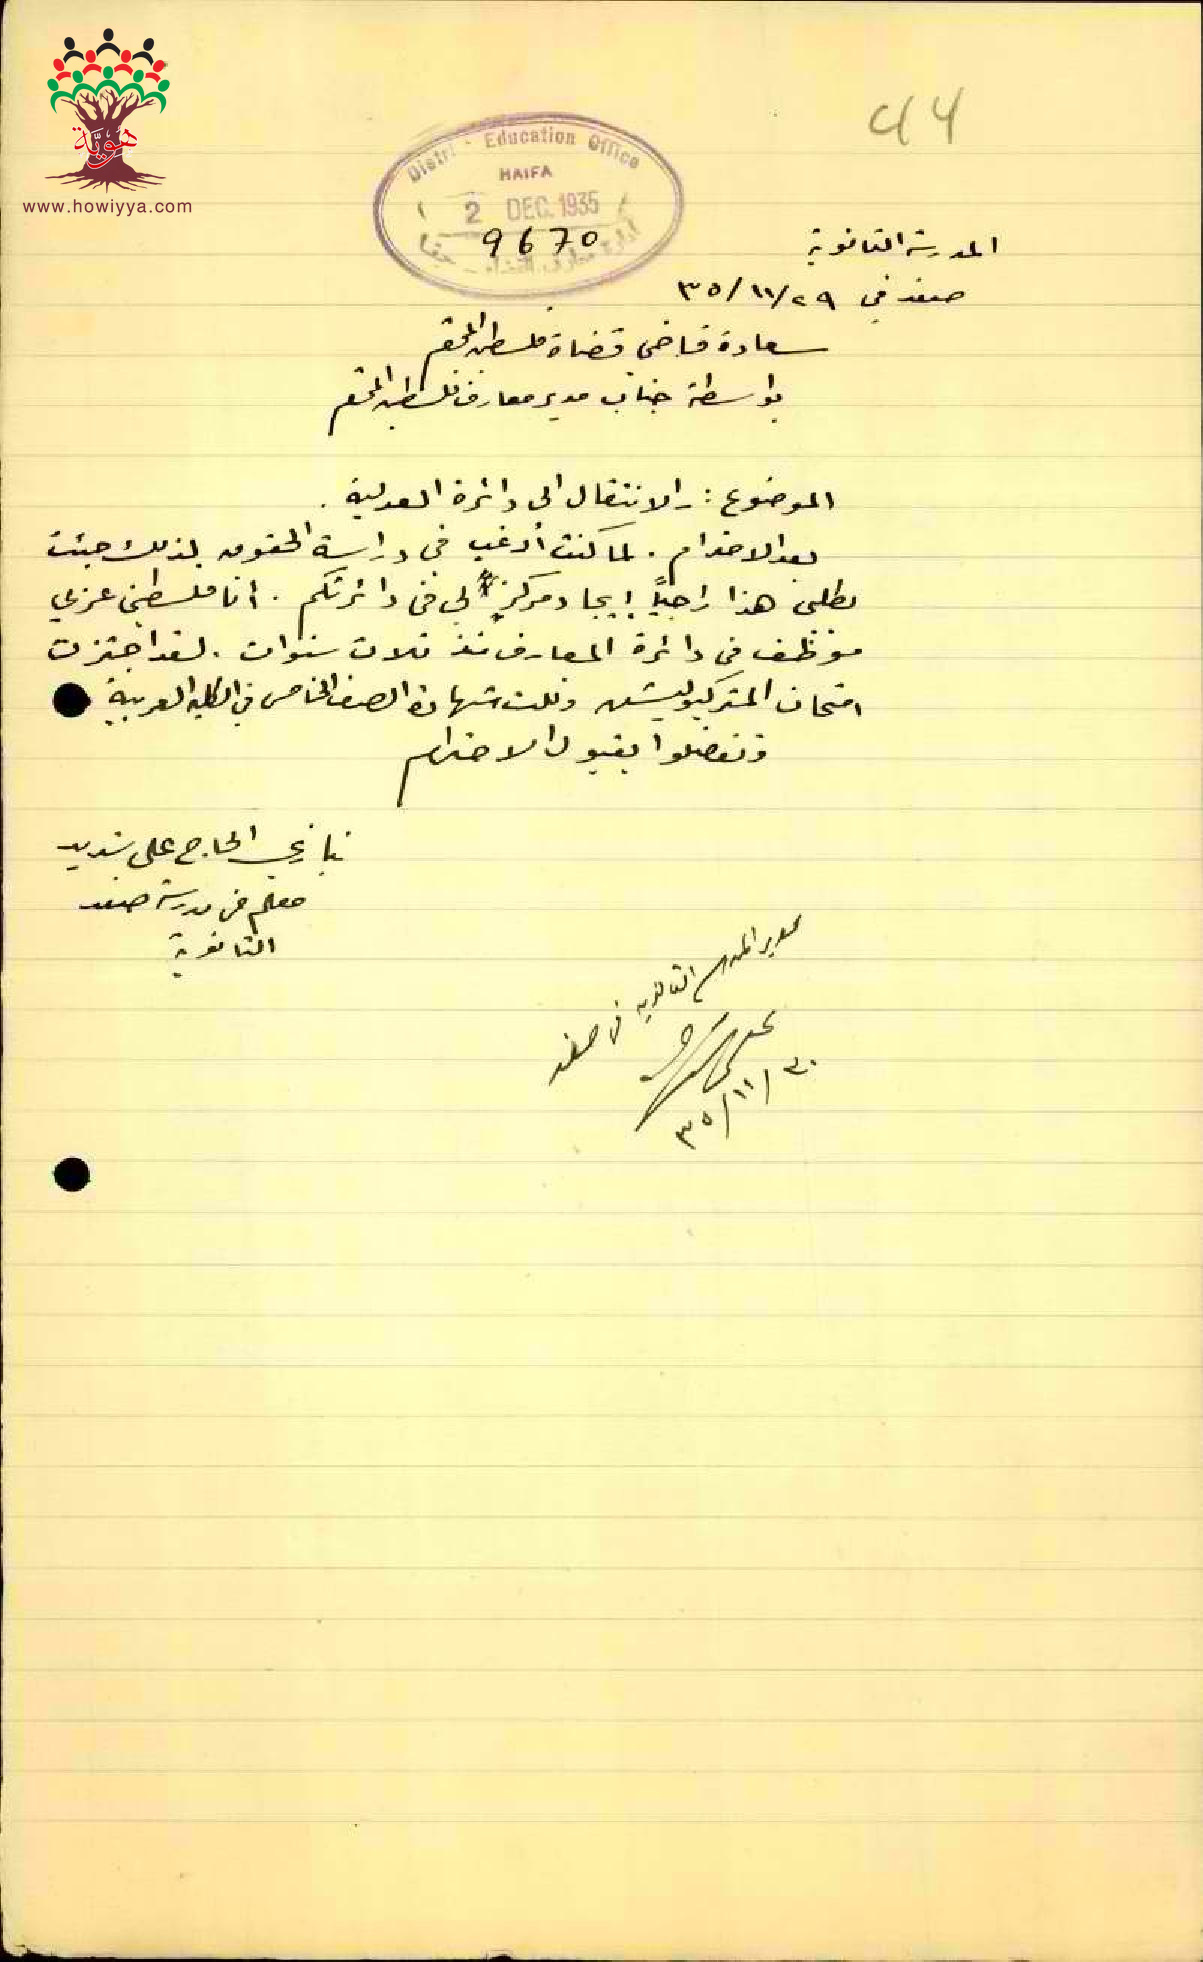 هويّة
www.howiyya.com
44
District Education Office
HAIFA
2 DEC. 1935
9670
ادارة معارف القضاء - حيفا
المدرسة الثانوية
صفد في ٢٩/١١/٣٥
سعادة قاضي قضاة فلسطين المحترم
بواسطة جناب مدير معارف فلسطين المحترم
الموضوع: الانتقال الى دائرة العدلية.
بعد الاحترام. لما كنت أرغب في دراسة الحقوق لذلك جئت
بطلبي هذا راجيًا إيجاد مركز لي في دائرتكم. أنا فلسطيني عربي
موظف في دائرة المعارف منذ ثلاث سنوات. لقد اجتزت
امتحان المتركيوليشن ونلت شهادة الصف الخامس في الكلية العربية
وتفضلوا بقبول الاحترام
الحاج علي شديد
معلم في مدرسة صفد
الثانوية
مدير المدرسة الثانوية في صفد
٣٠/١١/٣٥